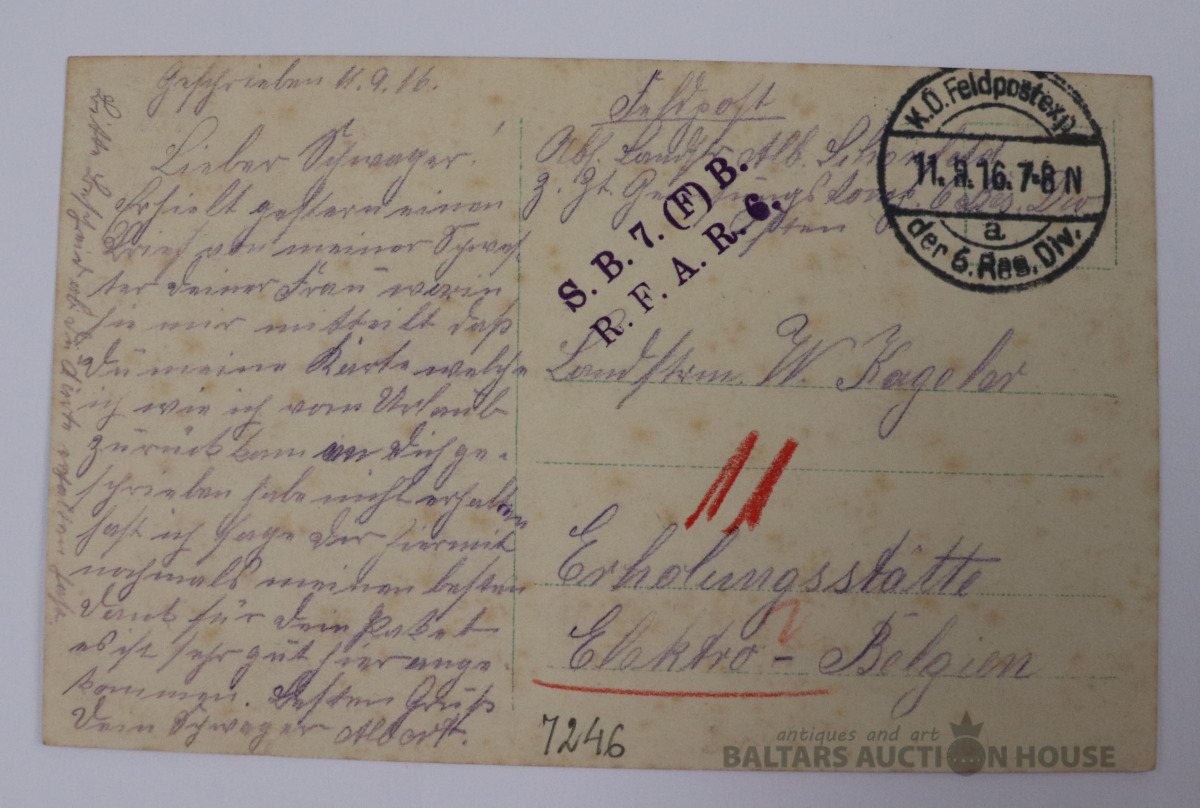 Geschrieben 11.9.16.
Lieber Schwager!
Erhielt gestern einen
Brief von meiner Schwes
ter deiner Frau worin
sie mir mitteilt daß
Du meine Karte welche
ich wie ich vom Urlaub
zurück kam an Dich ge-
schrieben habe nicht erhalten
hast ich sage Dir hiermit
nochmals meinen besten
Dank für dein Paket
es ist sehr gut hier ange-
kommen. Besten Gruß
Dein Schwager Albert.
Bitte ob du erhalten hast.
Feldpost
Abs. Landst. Alb.
z. Zt.
K.D. Feldpostexp.
11. 9. 16. 7-8 N
a
der 6. Res. Div.
S. B. 7. (F) B.
R. F. A. R. 6.
Landstrm. W. Kageler
11
Erholungsstätte
Elektro - Belgien
7246
antiques and art
BALTARS AUCTION HOUSE